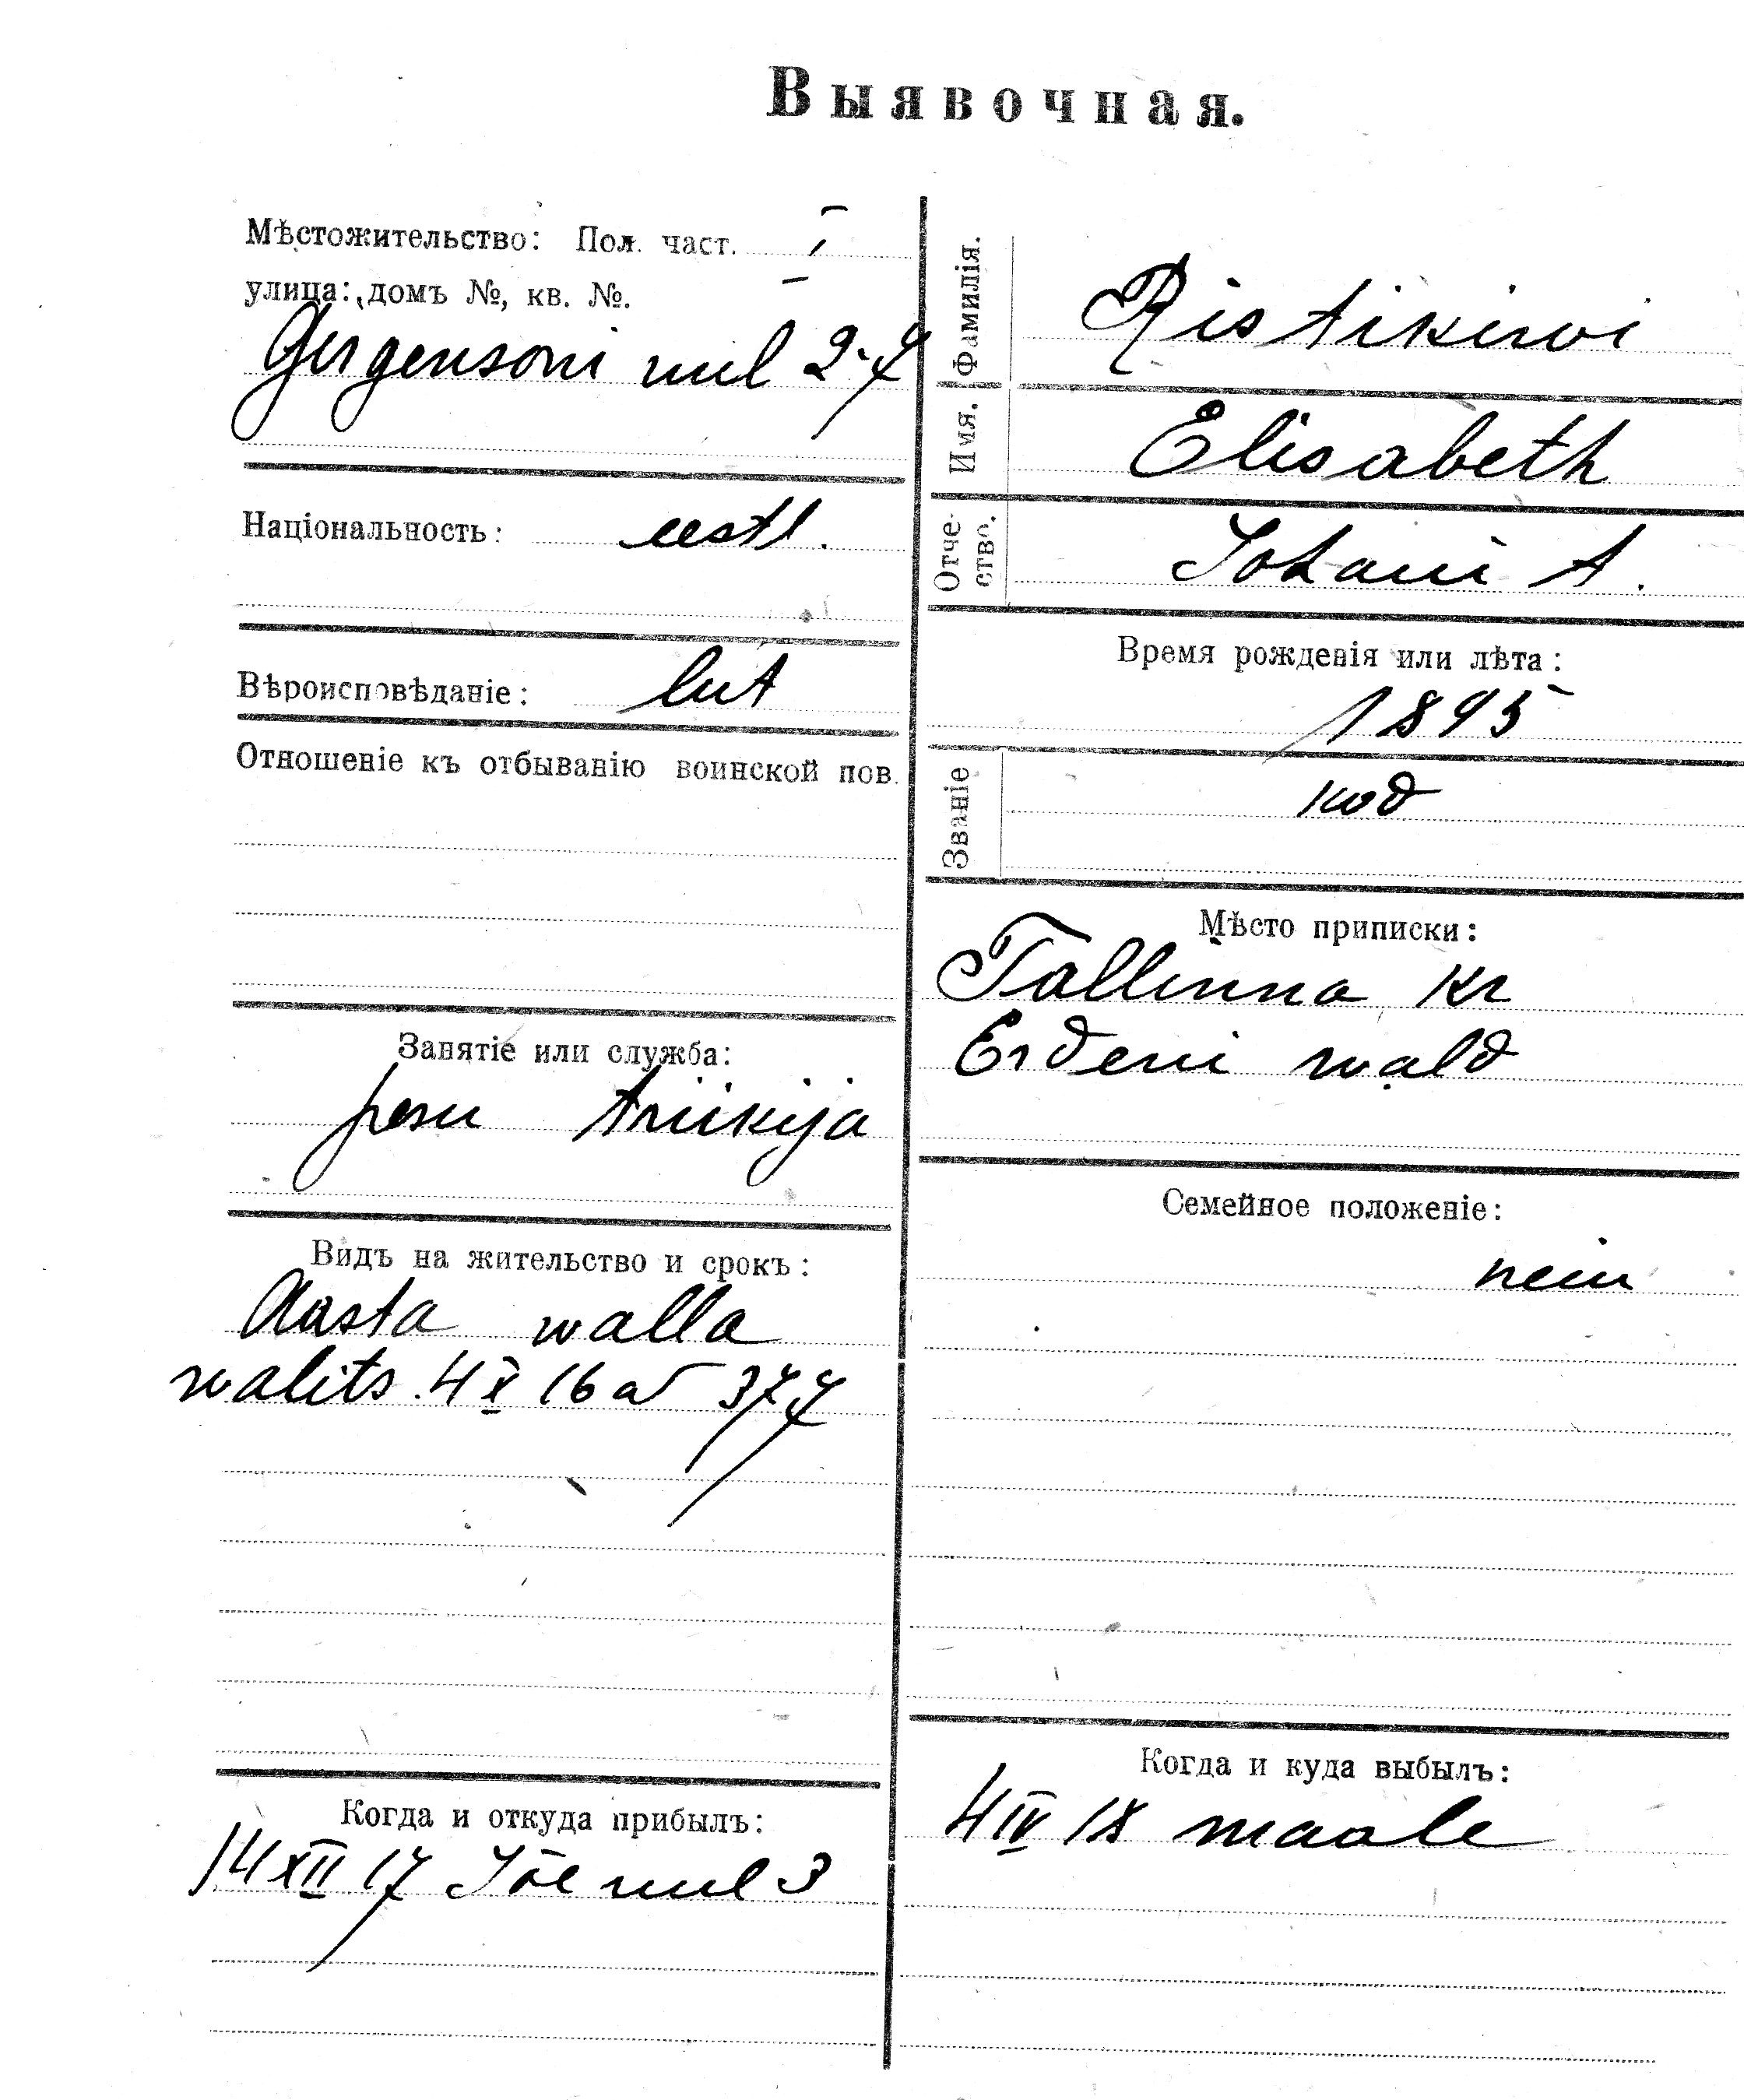 Выявочная.
Мѣстожительство: Пол. част. I
улица: домъ №, кв. №.
Gergensoni uul 2-7
Національность: eestl.
Вѣроисповѣданіе: lut
Отношеніе къ отбыванію воинской пов.
Занятіе или служба:
pesu triikija
Видъ на жительство и срокъ:
Aasta walla
walits. 4 X 16 a 377
Когда и откуда прибылъ:
14 XII 17 Jõe uul 3
Фамилія. Ristikiwi
Имя. Elisabeth
Отче-
ство. Johani t.
Время рожденія или лѣта:
1895
Званіе kod
Мѣсто приписки:
Tallinna kr
Erdeni wald
Семейное положеніе:
neiu
Когда и куда выбылъ:
4 IV 18 maale